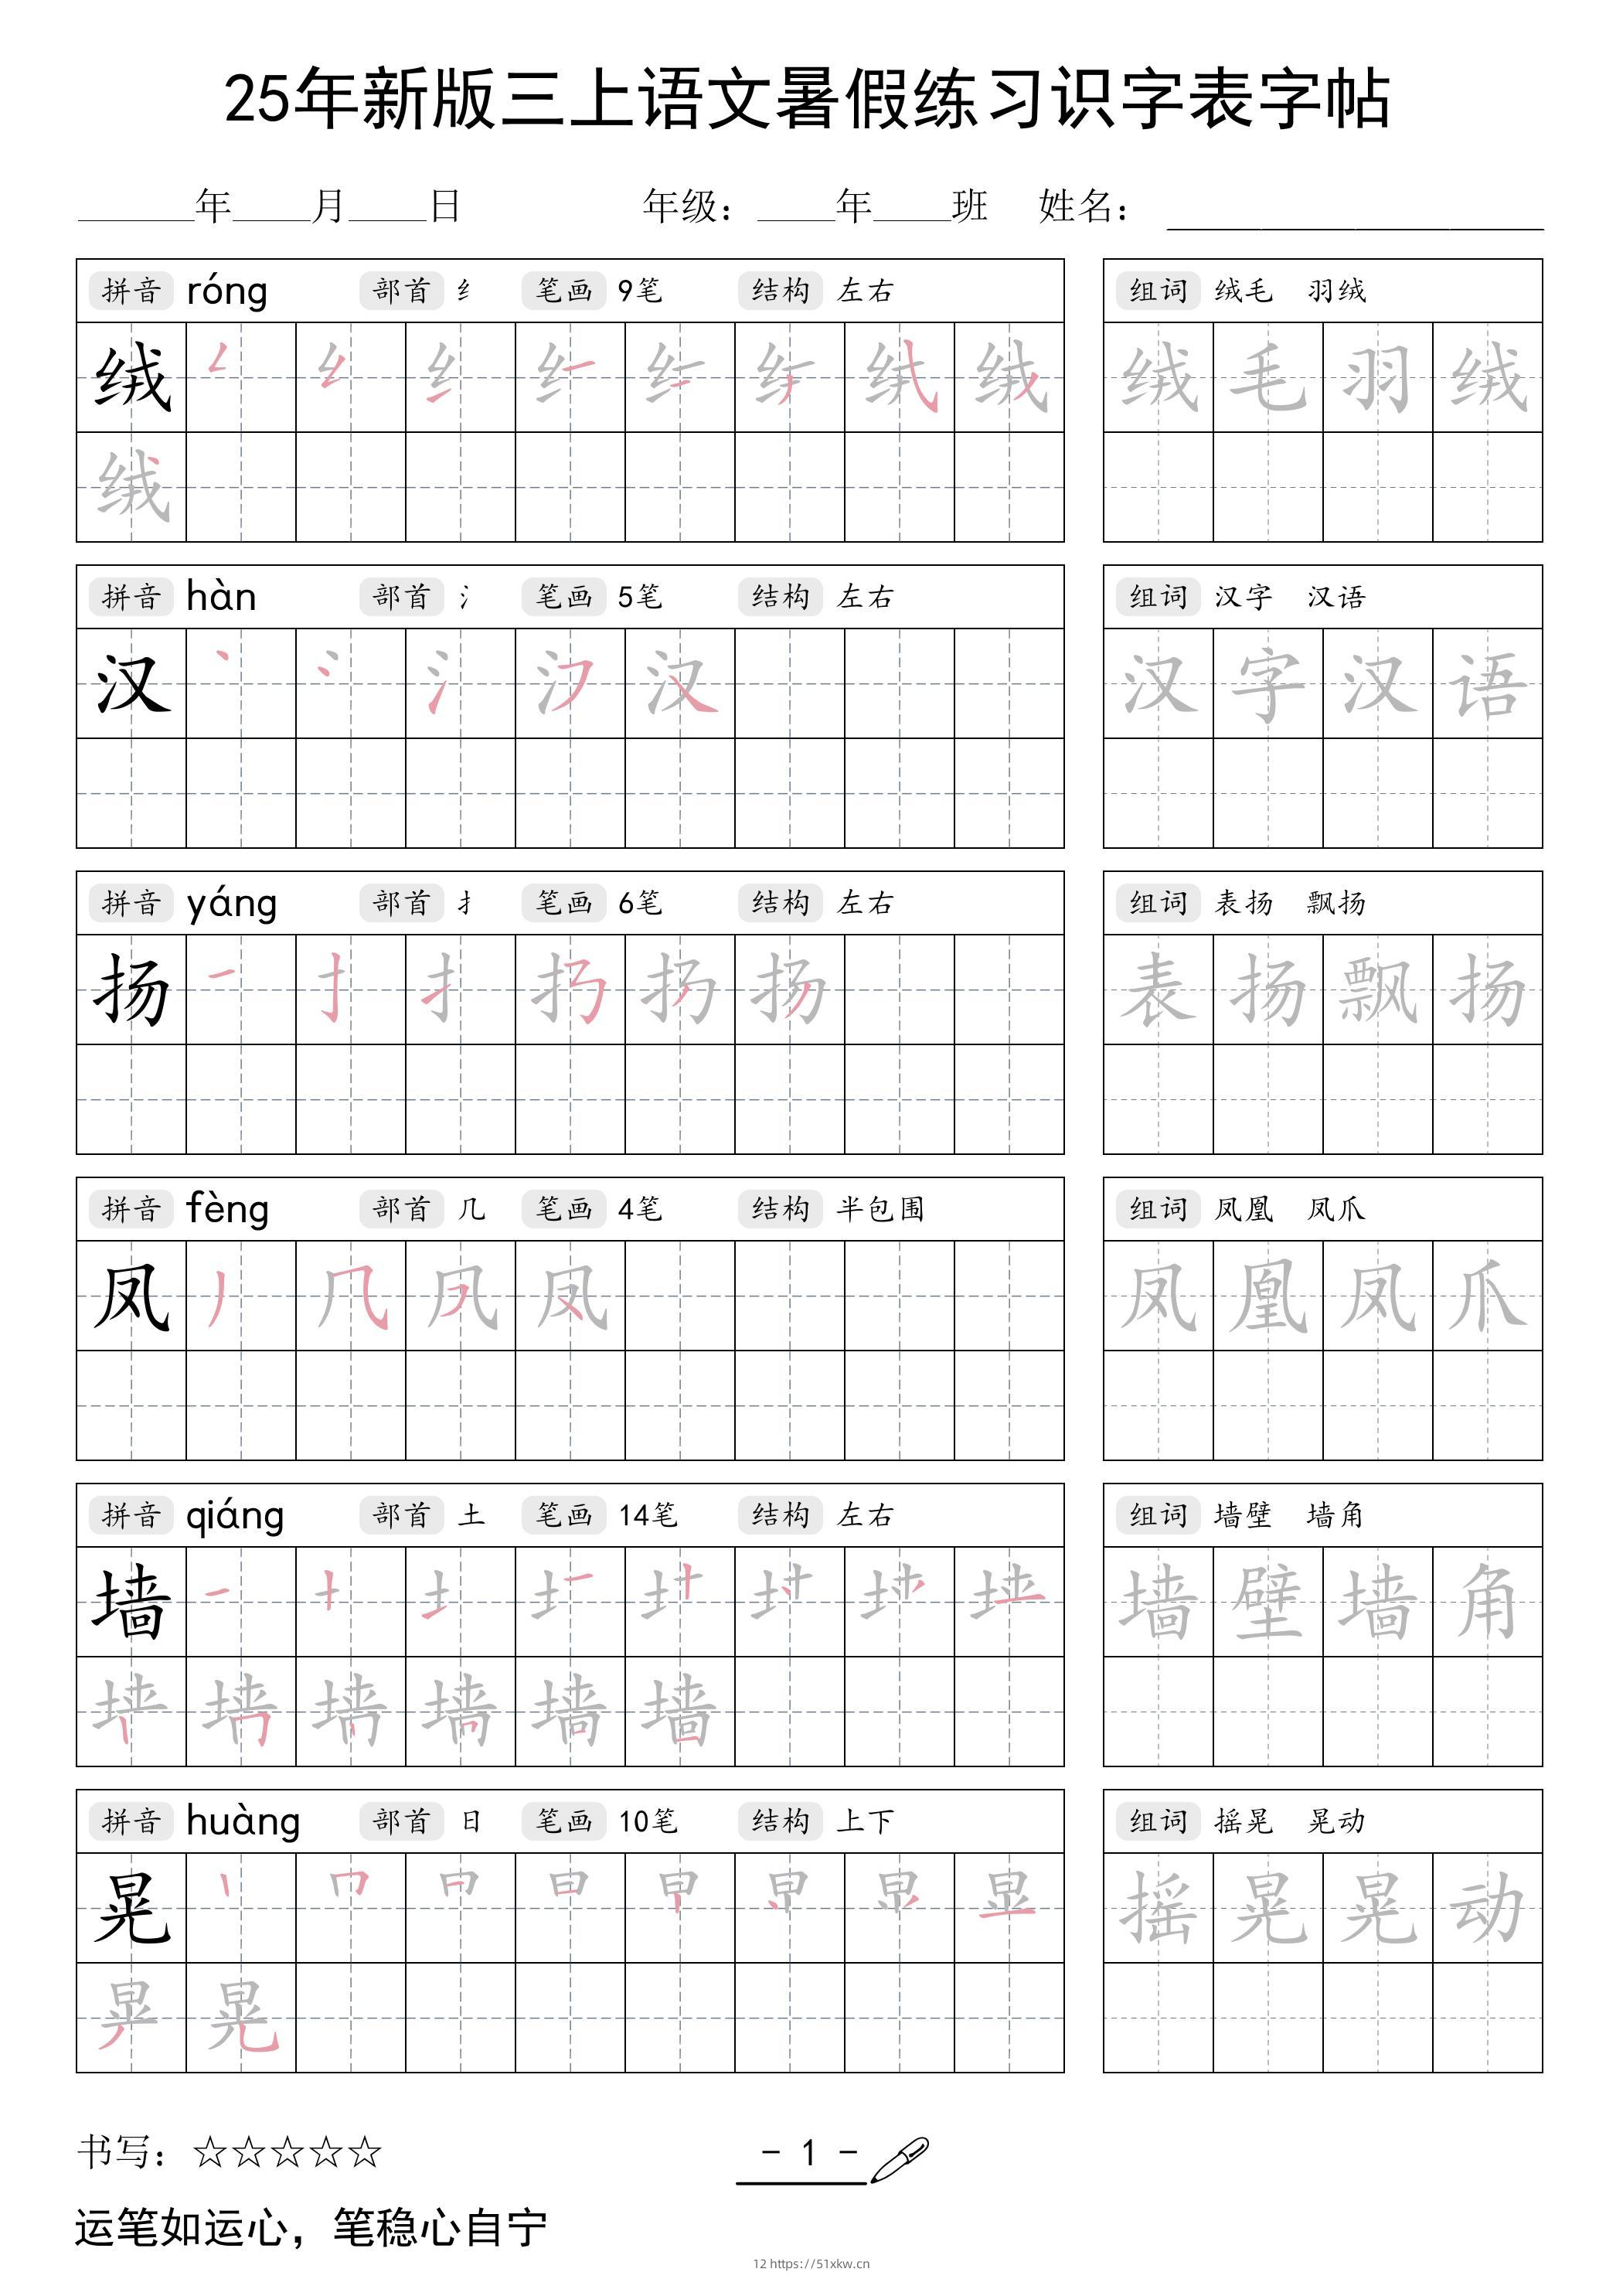 25年新版三上语文暑假练习识字表字帖
______年____月____日 年级：____年____班 姓名：____________________
拼音 róng 部首 纟 笔画 9笔 结构 左右 组词 绒毛 羽绒
绒 绒 毛 羽 绒
绒
拼音 hàn 部首 氵 笔画 5笔 结构 左右 组词 汉字 汉语
汉 汉 字 汉 语
拼音 yáng 部首 扌 笔画 6笔 结构 左右 组词 表扬 飘扬
扬 扬 表 扬 飘 扬
拼音 fèng 部首 几 笔画 4笔 结构 半包围 组词 凤凰 凤爪
凤 凤 凤 凰 凤 爪
拼音 qiáng 部首 土 笔画 14笔 结构 左右 组词 墙壁 墙角
墙 墙 壁 墙 角
墙
拼音 huàng 部首 日 笔画 10笔 结构 上下 组词 摇晃 晃动
晃 摇 晃 晃 动
晃
书写：☆☆☆☆☆ - 1 -
运笔如运心，笔稳心自宁
12 https://51xkw.cn